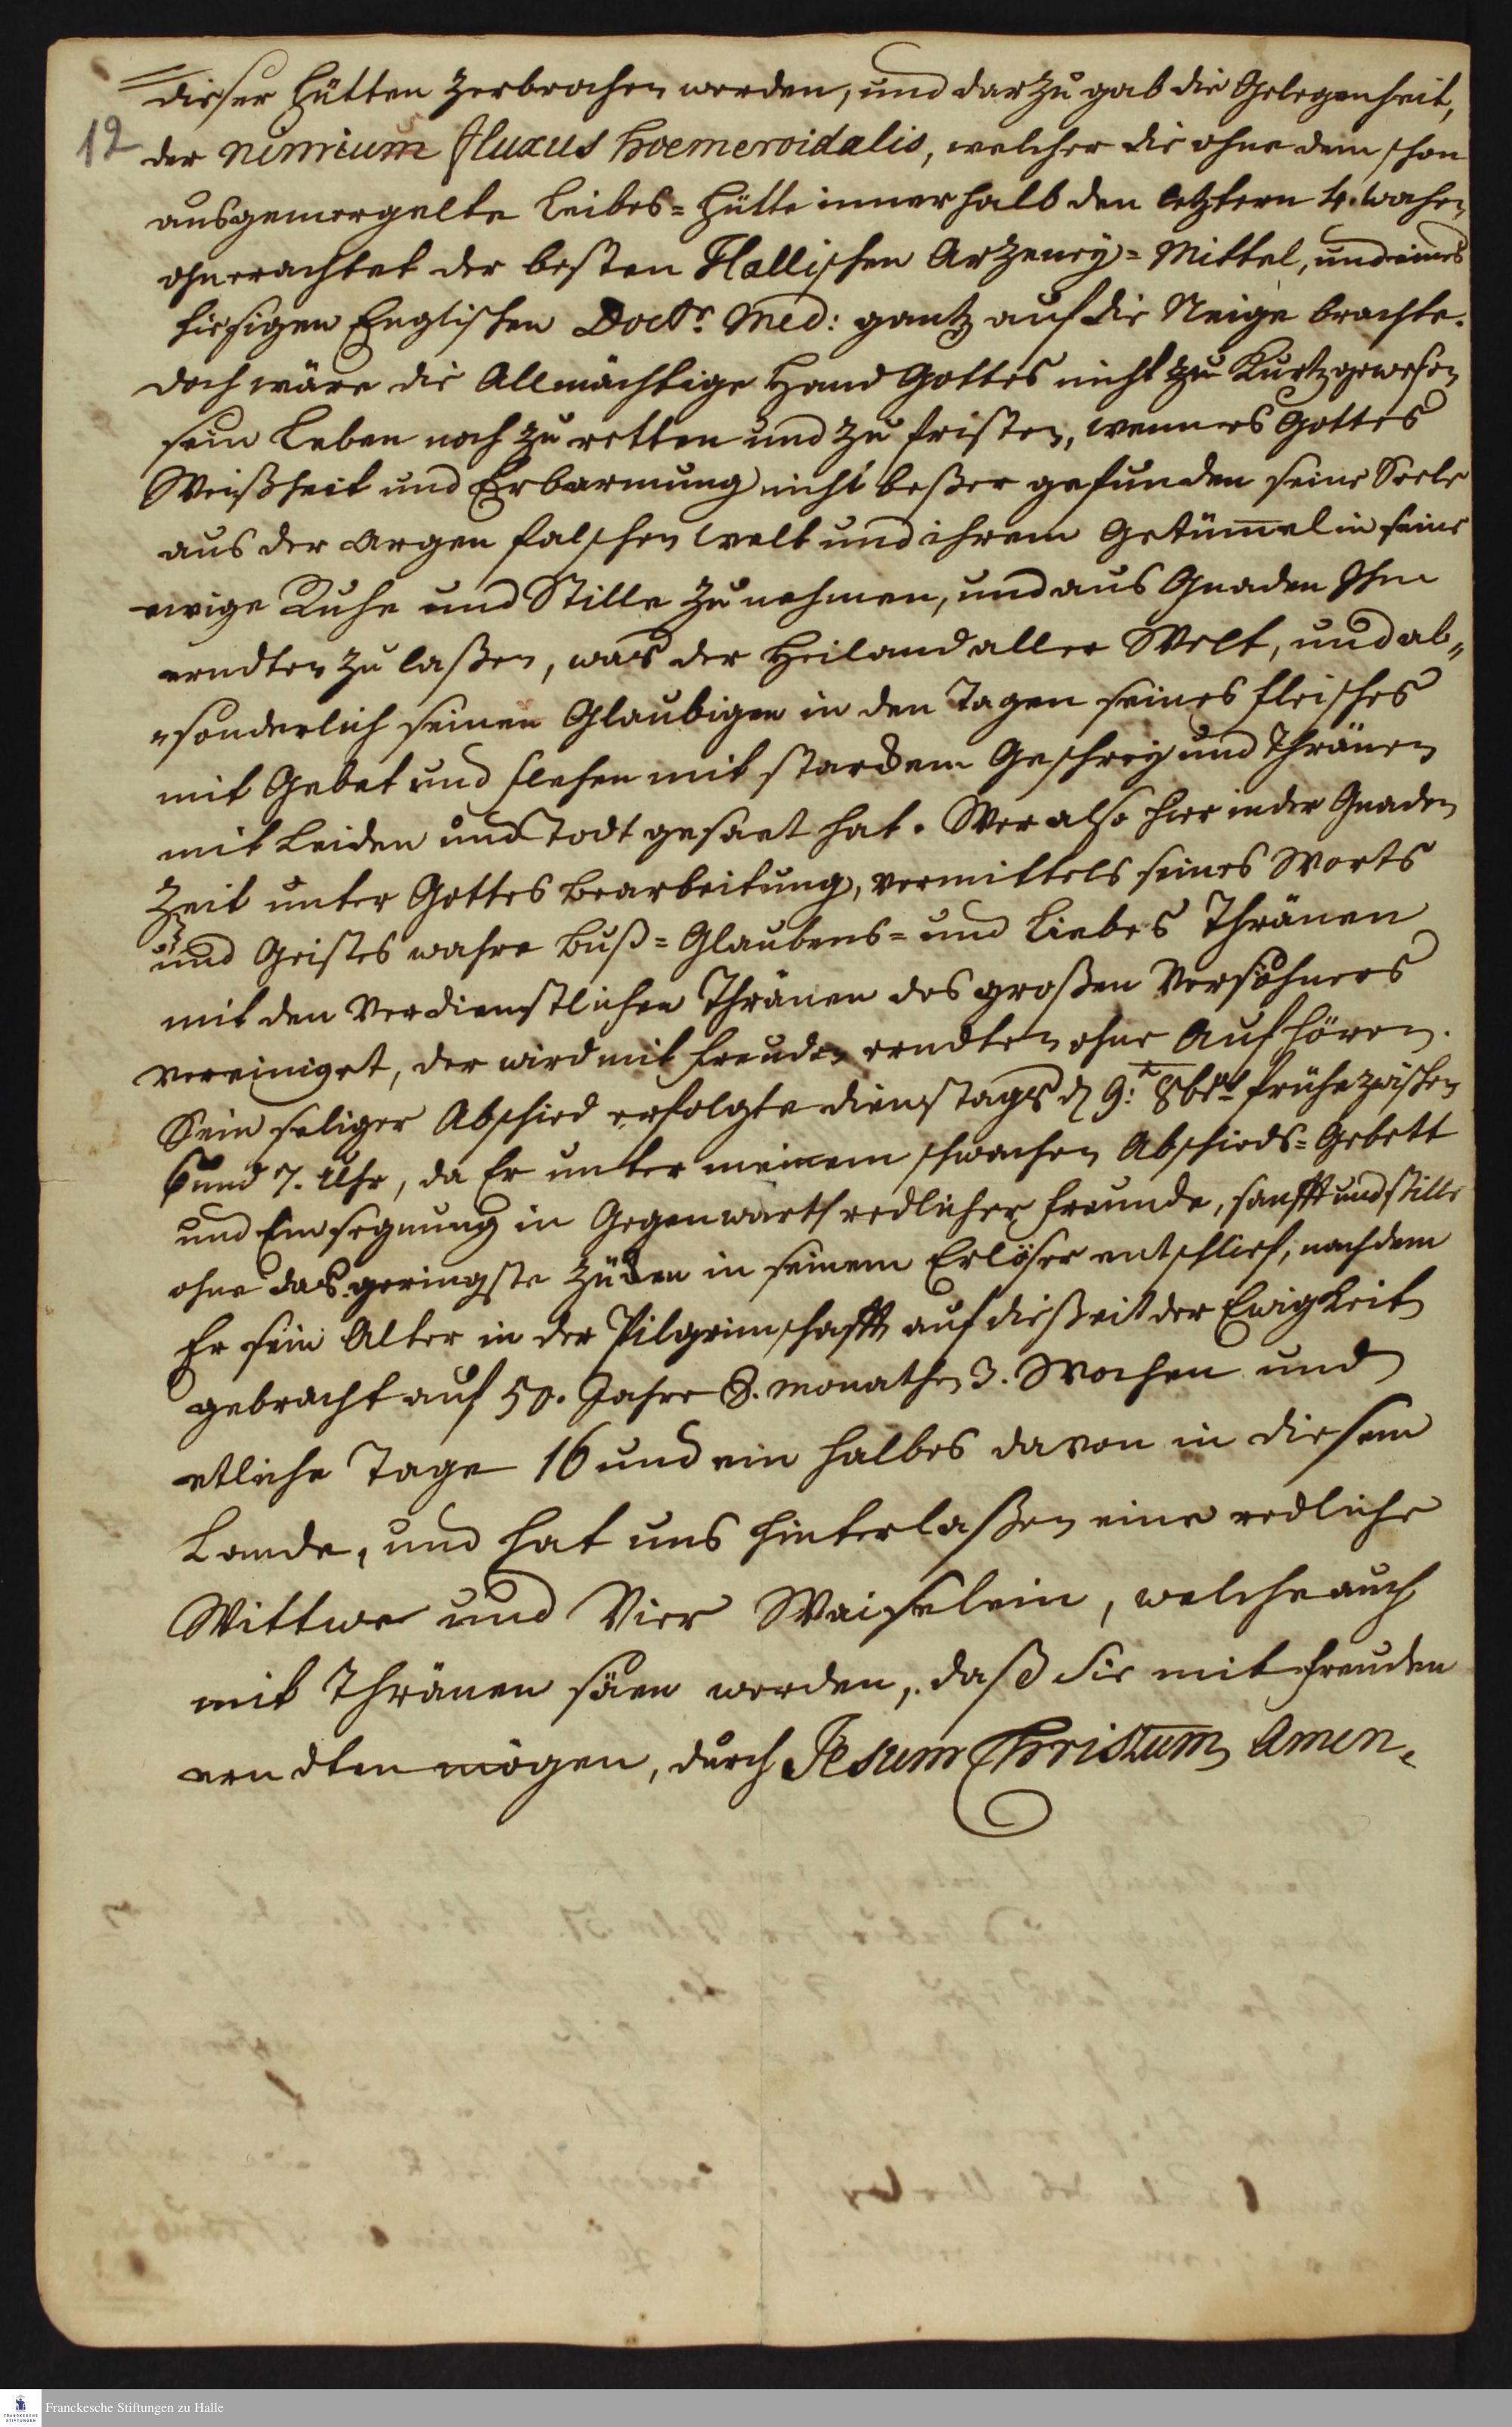 dieser Hütten zerbrochen werden, und darzu gab die Gelegenheit,
12
der nimium fluxus hoemeroidalis, welcher die ohne dem schon
ausgemergelte Leibes=Hütte innerhalb den letztern 4. Wochen
ohnerachtet der besten Hallischen Arzeney=Mittel, und eines
hiesigen Englischen Doctr. Med: gantz auf die Neige brachte.
Doch wäre die Allmächtige Hand Gottes nicht zu Kurtz gewesen
sein Leben noch zu retten und zu fristen, wenn es Gottes
Weißheit und Erbarmung nicht beßer gefunden seine Seele
aus der argen falschen Welt und ihrem Getümel in seine
ewige Ruhe und Stille zu nehmen, und aus Gnaden Ihm
erndten zu laßen, was der Heiland aller Welt, und ab„
„sonderlich seinen Glaubigen in den Tagen seines Fleisches
mit Gebet und Flehen mit starckem Geschrey und Thränen
mit Leiden und Todt gesaet hat. Wer also hier in der Gnaden
Zeit unter Gottes Bearbeitung, vermittels seines Worts
und Geistes wahre Buß=Glaubens=und Liebes Thränen
mit den Verdienstlichen Thränen des großen Versöhners
vereiniget, der wird mit Freuden erndten ohne Aufhören.
Sein seliger Abschied erfolgte Dienstags d 9: 8br frühe zwischen
6 und 7. Uhr, da Er unter meinem schwachen Abschieds=Gebett
und Einsegnung in Gegenwart redlicher Freunde, sanfft und stille
ohne das geringste Zücken in seinem Erlöser entschlief, nachdem
Er sein Alter in der Pilgrimschafft auf dießeit der Ewigkeit
gebracht auf 50. Jahre 8. Monathe 3. Wochen und
etliche Tage 16 und ein halbes davon in diesem
Lande, und hat uns hinterlaßen eine redliche
Wittwe und Vier Waiselein, welche auch
mit Thränen säen werden, daß Sie mit Freuden
erndten mögen, durch Jesum Christum Amen.
Franckesche Stiftungen zu Halle